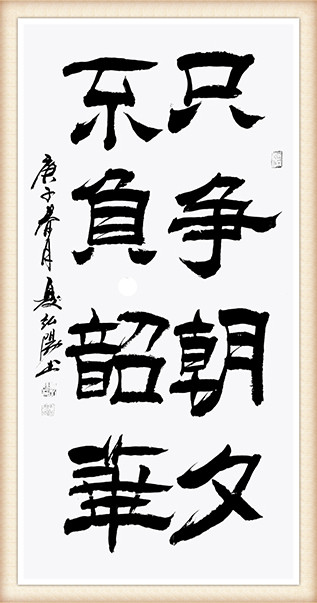 只争朝夕
不負韶華
庚子春月夏弘陽书